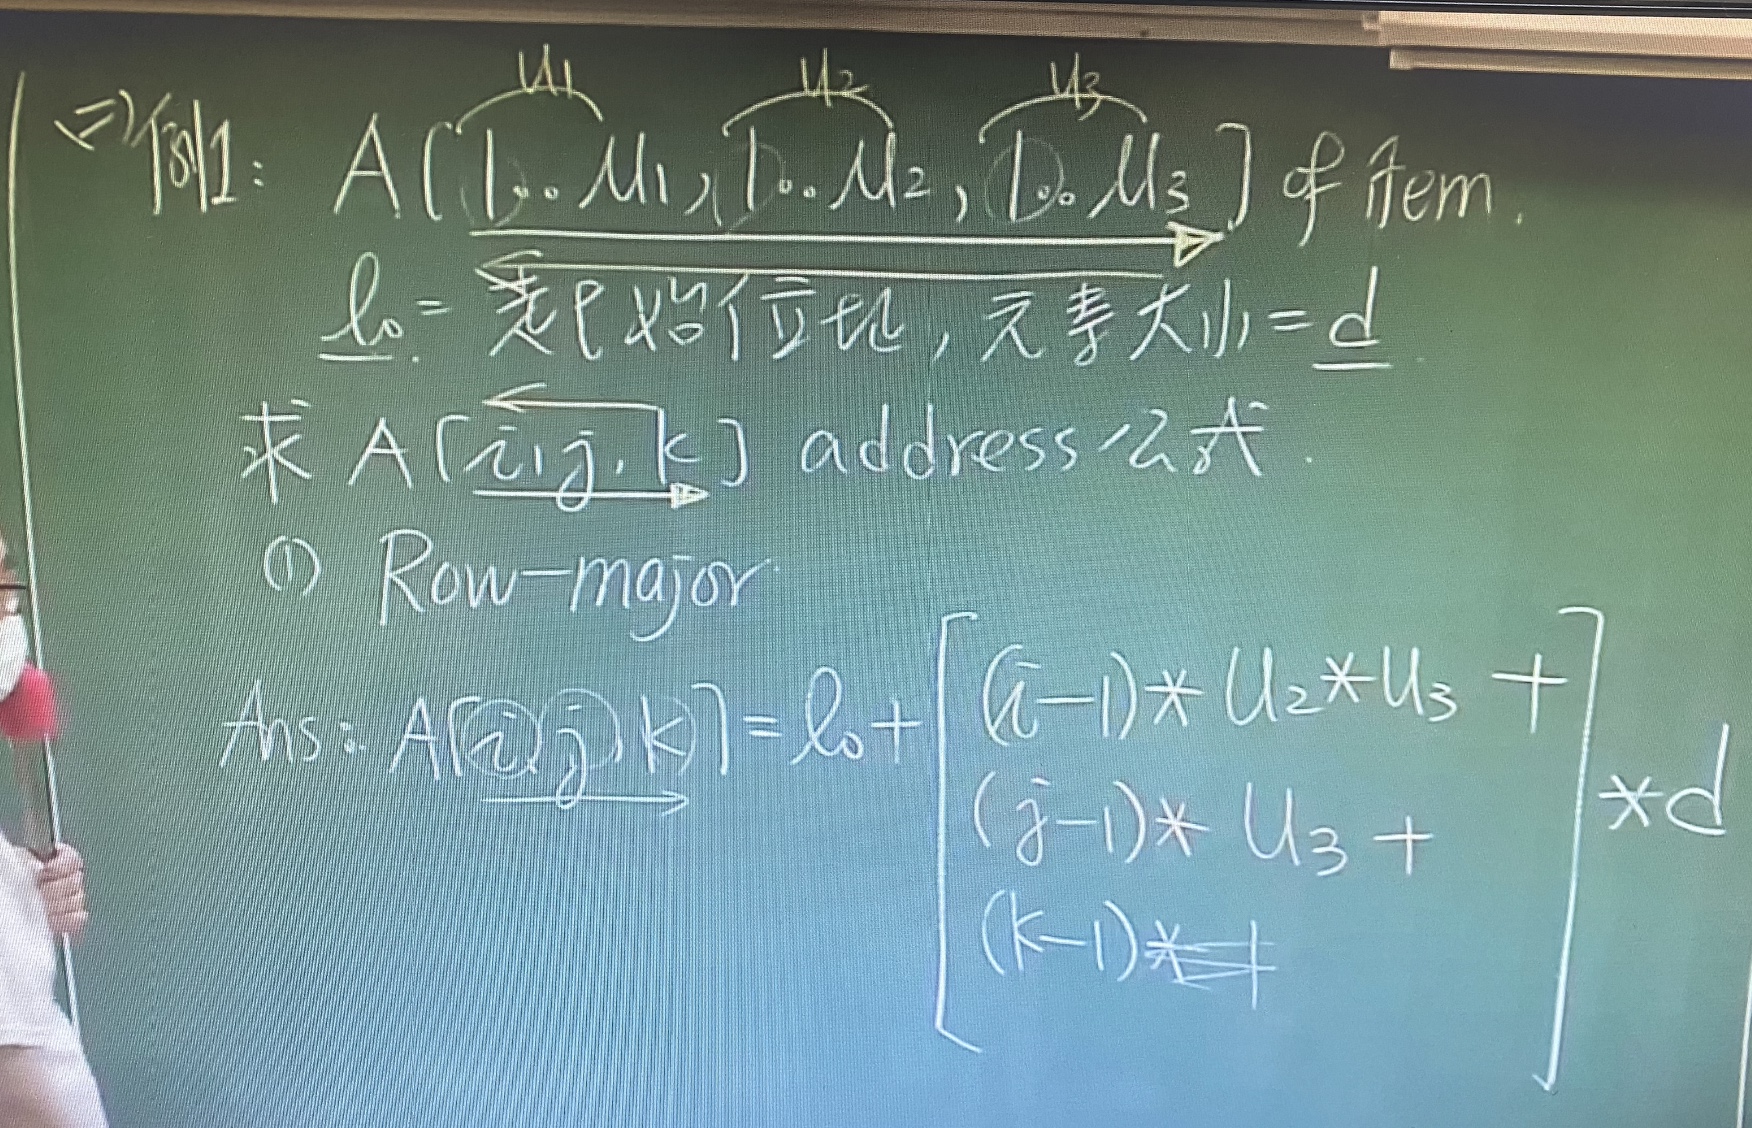 U1 U2 U3
(二)例1: A[1..U1, 1..U2, 1..U3] of item.
l0 = 表起始位址, 元素大小 = d
求 A[i, j, k] address 公式.
① Row-major
Ans: A[i, j, k] = l0 + [(i-1)*U2*U3 +
(j-1)*U3 +
(k-1)*1] *d